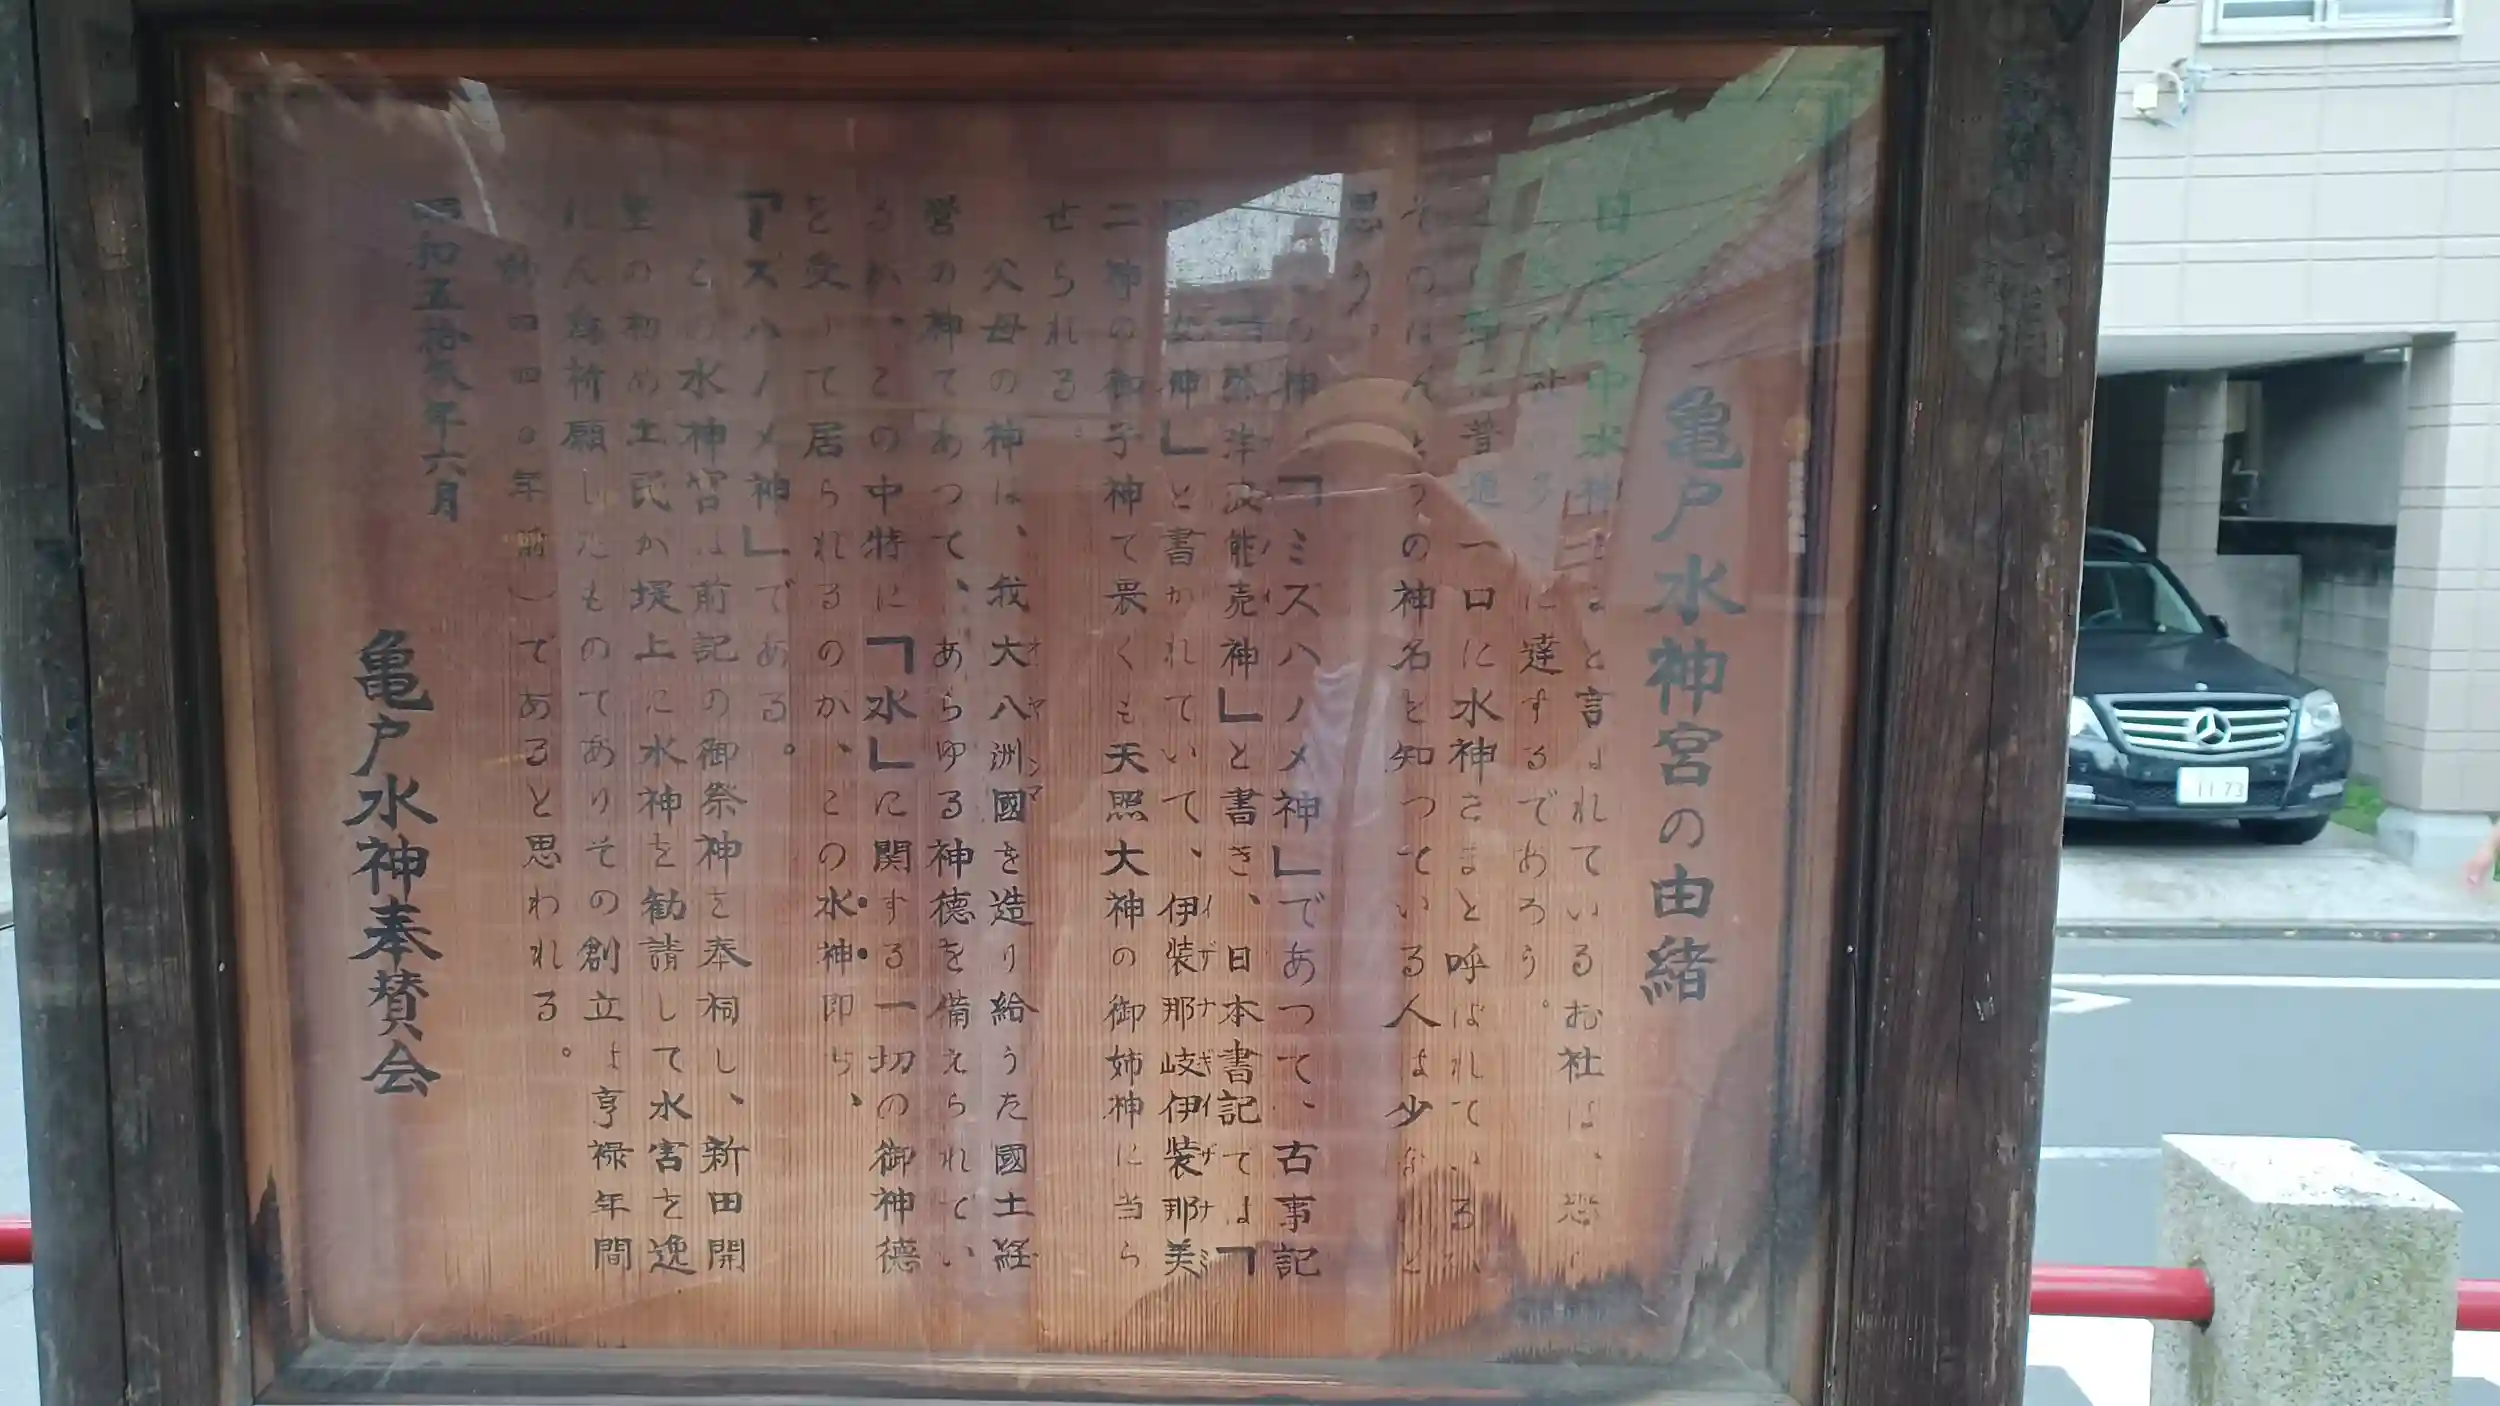 亀戸水神宮の由緒
日 中水神 と言われているお社は、恐
に達するであろう。
に普通一口に水神さまと呼ばれているが、
そのほんとうの神名を知つている人は少ないと
思う。
の神「ミズハノメ神」であつて、古事記
「弥津波能売神」と書き、日本書記では「
女神」と書かれていて、伊装那岐伊装那美
イザナギイザナミ
二神の御子神で畏くも天照大神の御姉神に当ら
せられる。
父母の神は、我大八洲國を造り給うた國土経
オヤシマ
営の神であつて、あらゆる神徳を備えられてい
るが、この中特に「水」に関する一切の御神徳
を受けて居られるのが、この水神即ち、
「ミズハノメ神」である。
この水神宮は前記の御祭神を奉祠し、新田開
墾の初め土民が堤上に水神を勧請して水害を逸
れん為祈願したものでありその創立は亨禄年間
（約四四〇年前）であると思われる。
昭和五拾 年六月
亀戸水神奉賛会
11-73